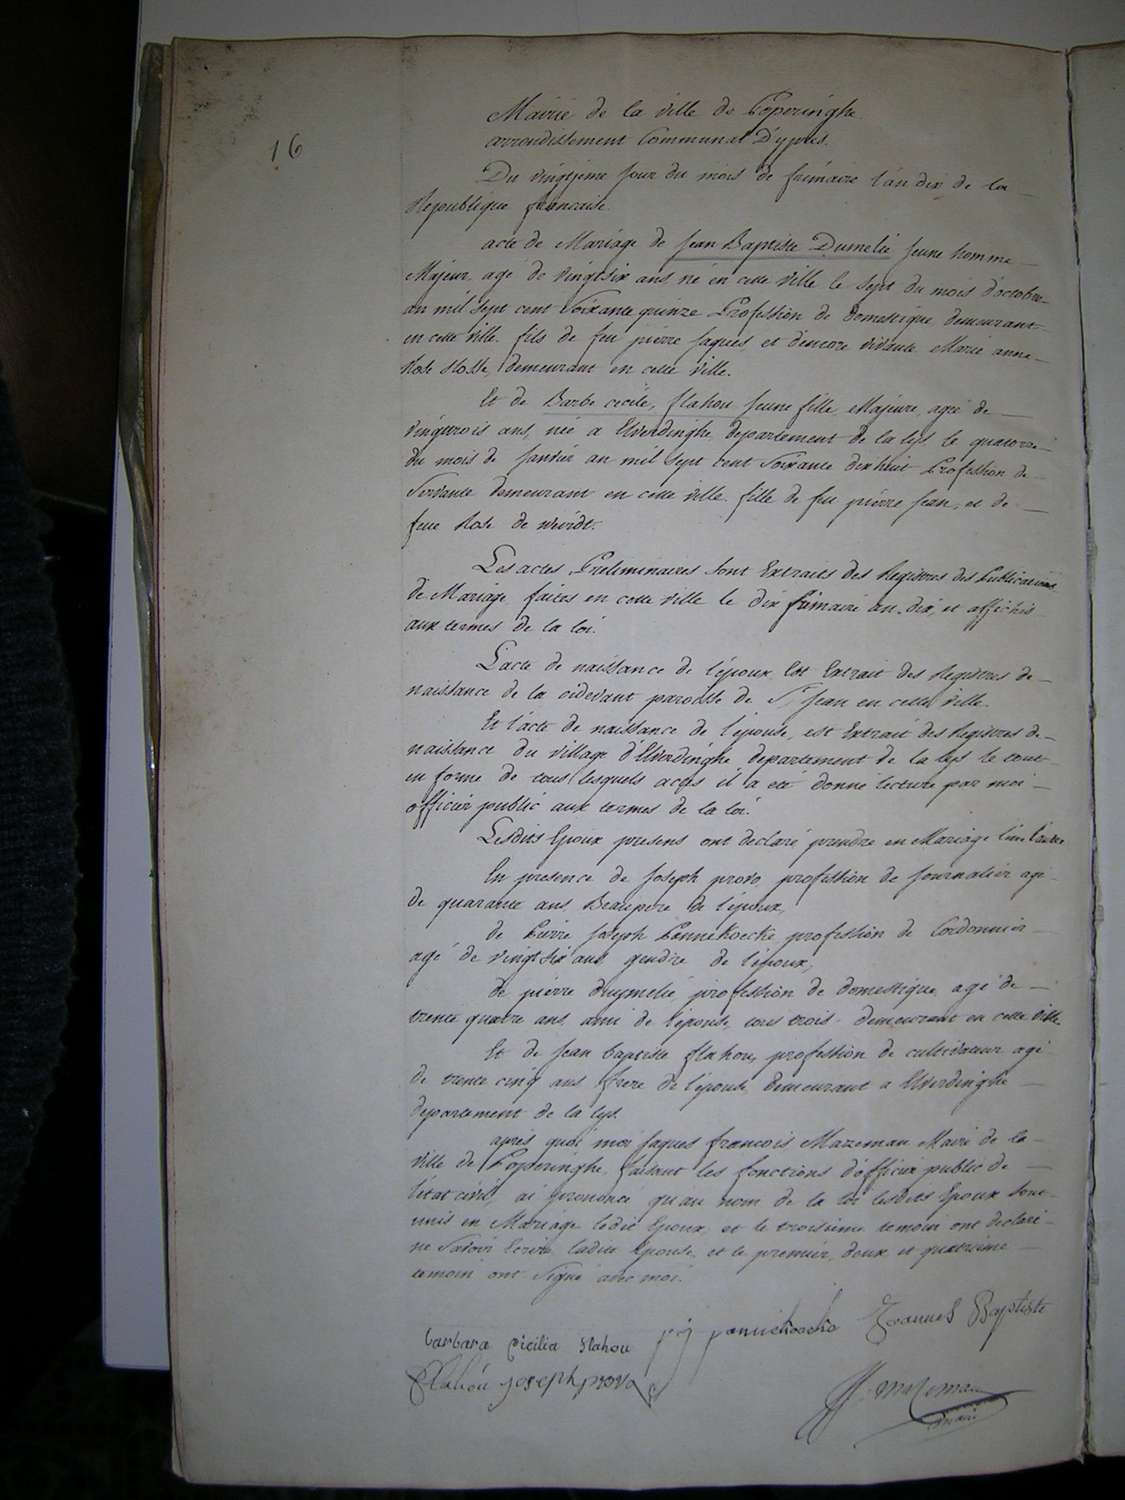 16
Mairie de la ville de Poperinghe
arrondissement Communal D'ypres.
Du vingtjeme jour du mois de frimaire l'an dix de la
Republique francaise.
acte de Mariage de Jean Baptiste Dumelie jeune homme
Majeur, agé de vingtsix ans, né en cette ville le sept du mois d'octobre
an mil sept cent soixante quinze Profession de domestique, demeurant
en cette ville. fils de feu pierre jaques, et d'encore vivante Marie anne
Rose demeurant en cette ville.
Et de Barbe cecile, flahou jeune fille, Majeure, agée de
vingtrois ans, née a Elverdinghe, departement de la lys, le quatorze
du mois de janvier an mil sept cent soixante dixhuit Profession de
servante demeurant en cette ville. fille de feu pierre jean, et de
feue Rose de
Les actes Preliminaires sont Extraits des Registres des Publications
de Mariage faites en cette ville le dix frimaire an dix, et affichés
aux termes de la loi.
L'acte de naissance de l'époux Est Extrait des Registres de
naissance de la cidevant paroisse de St Jean en cette ville.
Et l'acte de naissance de l'épouse, est Extrait des Registres de
naissance du village d'Elverdinghe departement de la lys le tout
en forme de tous lesquels actes il a été donné lecture par moi
officier public aux termes de la loi.
Lesdits Epoux presens ont declaré prendre en Mariage l'un l'autre
En presence de Joseph provo profession de journalier agé
de quarante ans Beaupere de l'époux,
de Pierre Joseph Pannekoecke profession de Cordonnier
agé de vingtsix ans gendre de l'époux,
de pierre duymelie profession de domestique, agé de
trente quatre ans, ami de l'épouse, tous trois demeurant en cette ville
Et de Jean baptiste flahou, profession de cultivateur agé
de trente cinq ans frere de l'épouse demeurant a Elverdinghe
departement de la lys.
après quoi moi jaques francois Mazeman Maire de la
ville de Poperinghe faisant les fonctions d'officier public de
l'état civil, ai prononcé qu'au nom de la loi lesdits Epoux sont
unis en Mariage ledit Epoux, et le troisieme temoin ont declaré
ne savoir Ecrire, ladite Epouse, et le premier, deux et quatrieme
temoin ont signé avec moi.
barbara cicilia flahou pij pannekoecke Joannes Baptiste
Flahou joseph provo
mazeman
maire